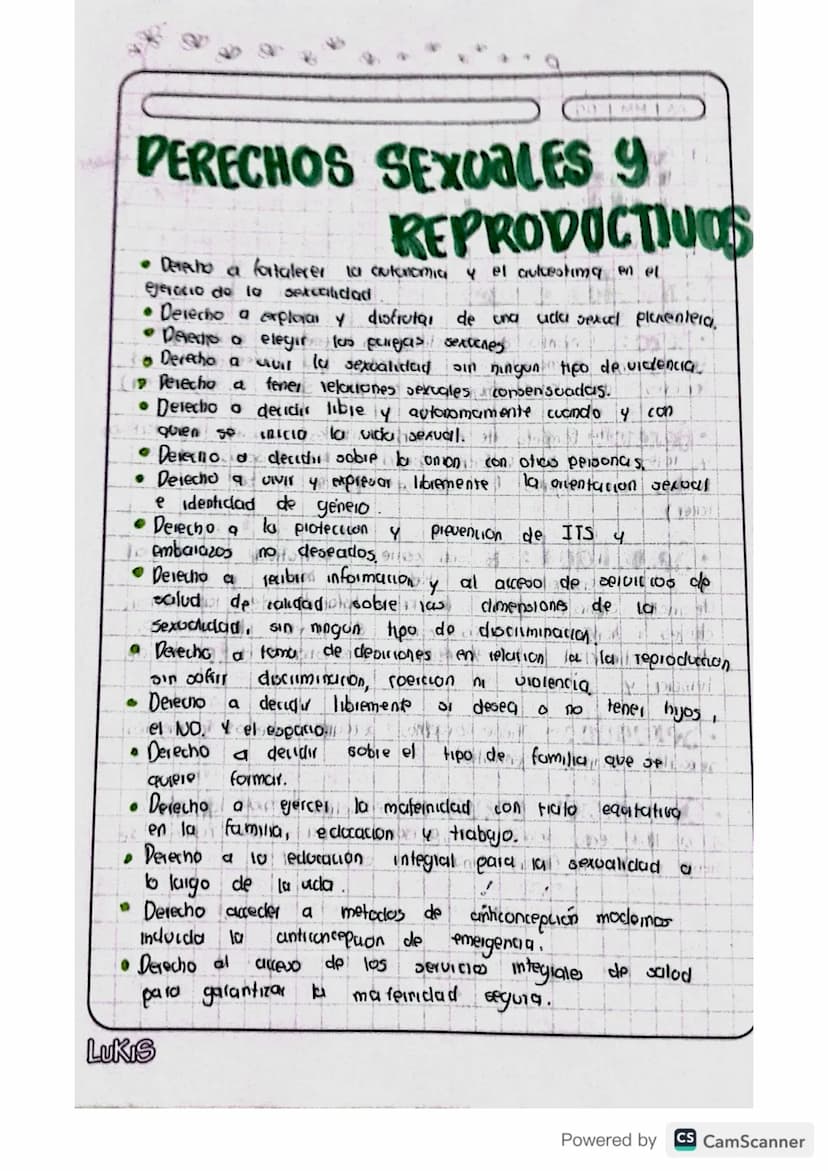 DERECHOS SEXUALES Y
REPRODUCTIVOS
• Derecho a fortalecer la autonomia y el autoestima en el
ejercicio de la sexualidad
• Derecho a explorar y disfrutar de una vida sexual placentera.
• Derecho a elegir las parejas sexuales
• Derecho a vivir la sexualidad sin ningun tipo de violencia.
• Derecho a tener relaciones sexuales consensuadas.
• Derecho a decidir libre y autonomamente cuando y con
quien se inicio la vida sexual.
• Derecho a decidir sobre la union con otras personas.
• Derecho a vivir y expresar libremente la orientacion sexual
e identidad de género.
• Derecho a la proteccion y prevencion de ITS y
embarazos no deseados.
• Derecho a recibir informacion y al acceso de servicios de
salud de calidad sobre las dimensiones de la
sexualidad, sin ningun tipo de discriminacion.
• Derecho a toma de desiciones en relation a la reproduction
sin sofrir discriminicion, coercion ni violencia
• Derecho a decidir libremente si desea o no tener hijos,
el NO. Y el espacio
• Derecho a decidir sobre el tipo de familia que se
quiere formar.
• Derecho a ejercer la mateinidad con trato equitativo
en la familia, educacion y trabajo.
• Derecho a la educación integral para la sexualidad a
lo largo de la vida.
• Derecho acceder a metodos de anticoncepción modernos
incluida la anticoncepcion de emergencia.
• Derecho al acceso de los servicios integrales de salud
para garantizar la mateinidad segura.
LUKIS
Powered by CS CamScanner